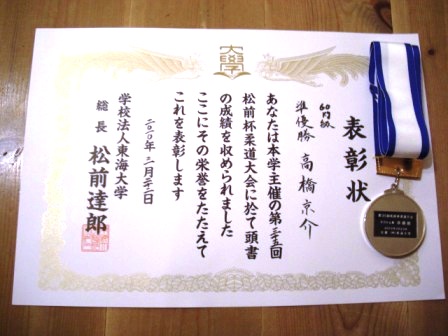 大學
表彰状
60kg級
準優勝 高橋京介
あなたは本学主催の第三五回
松前杯柔道大会に於て頭書
の成績を収められました
ここにその栄誉をたたえて
これを表彰します
二〇一〇年三月二十二日
学校法人東海大学
総長 松前達郎